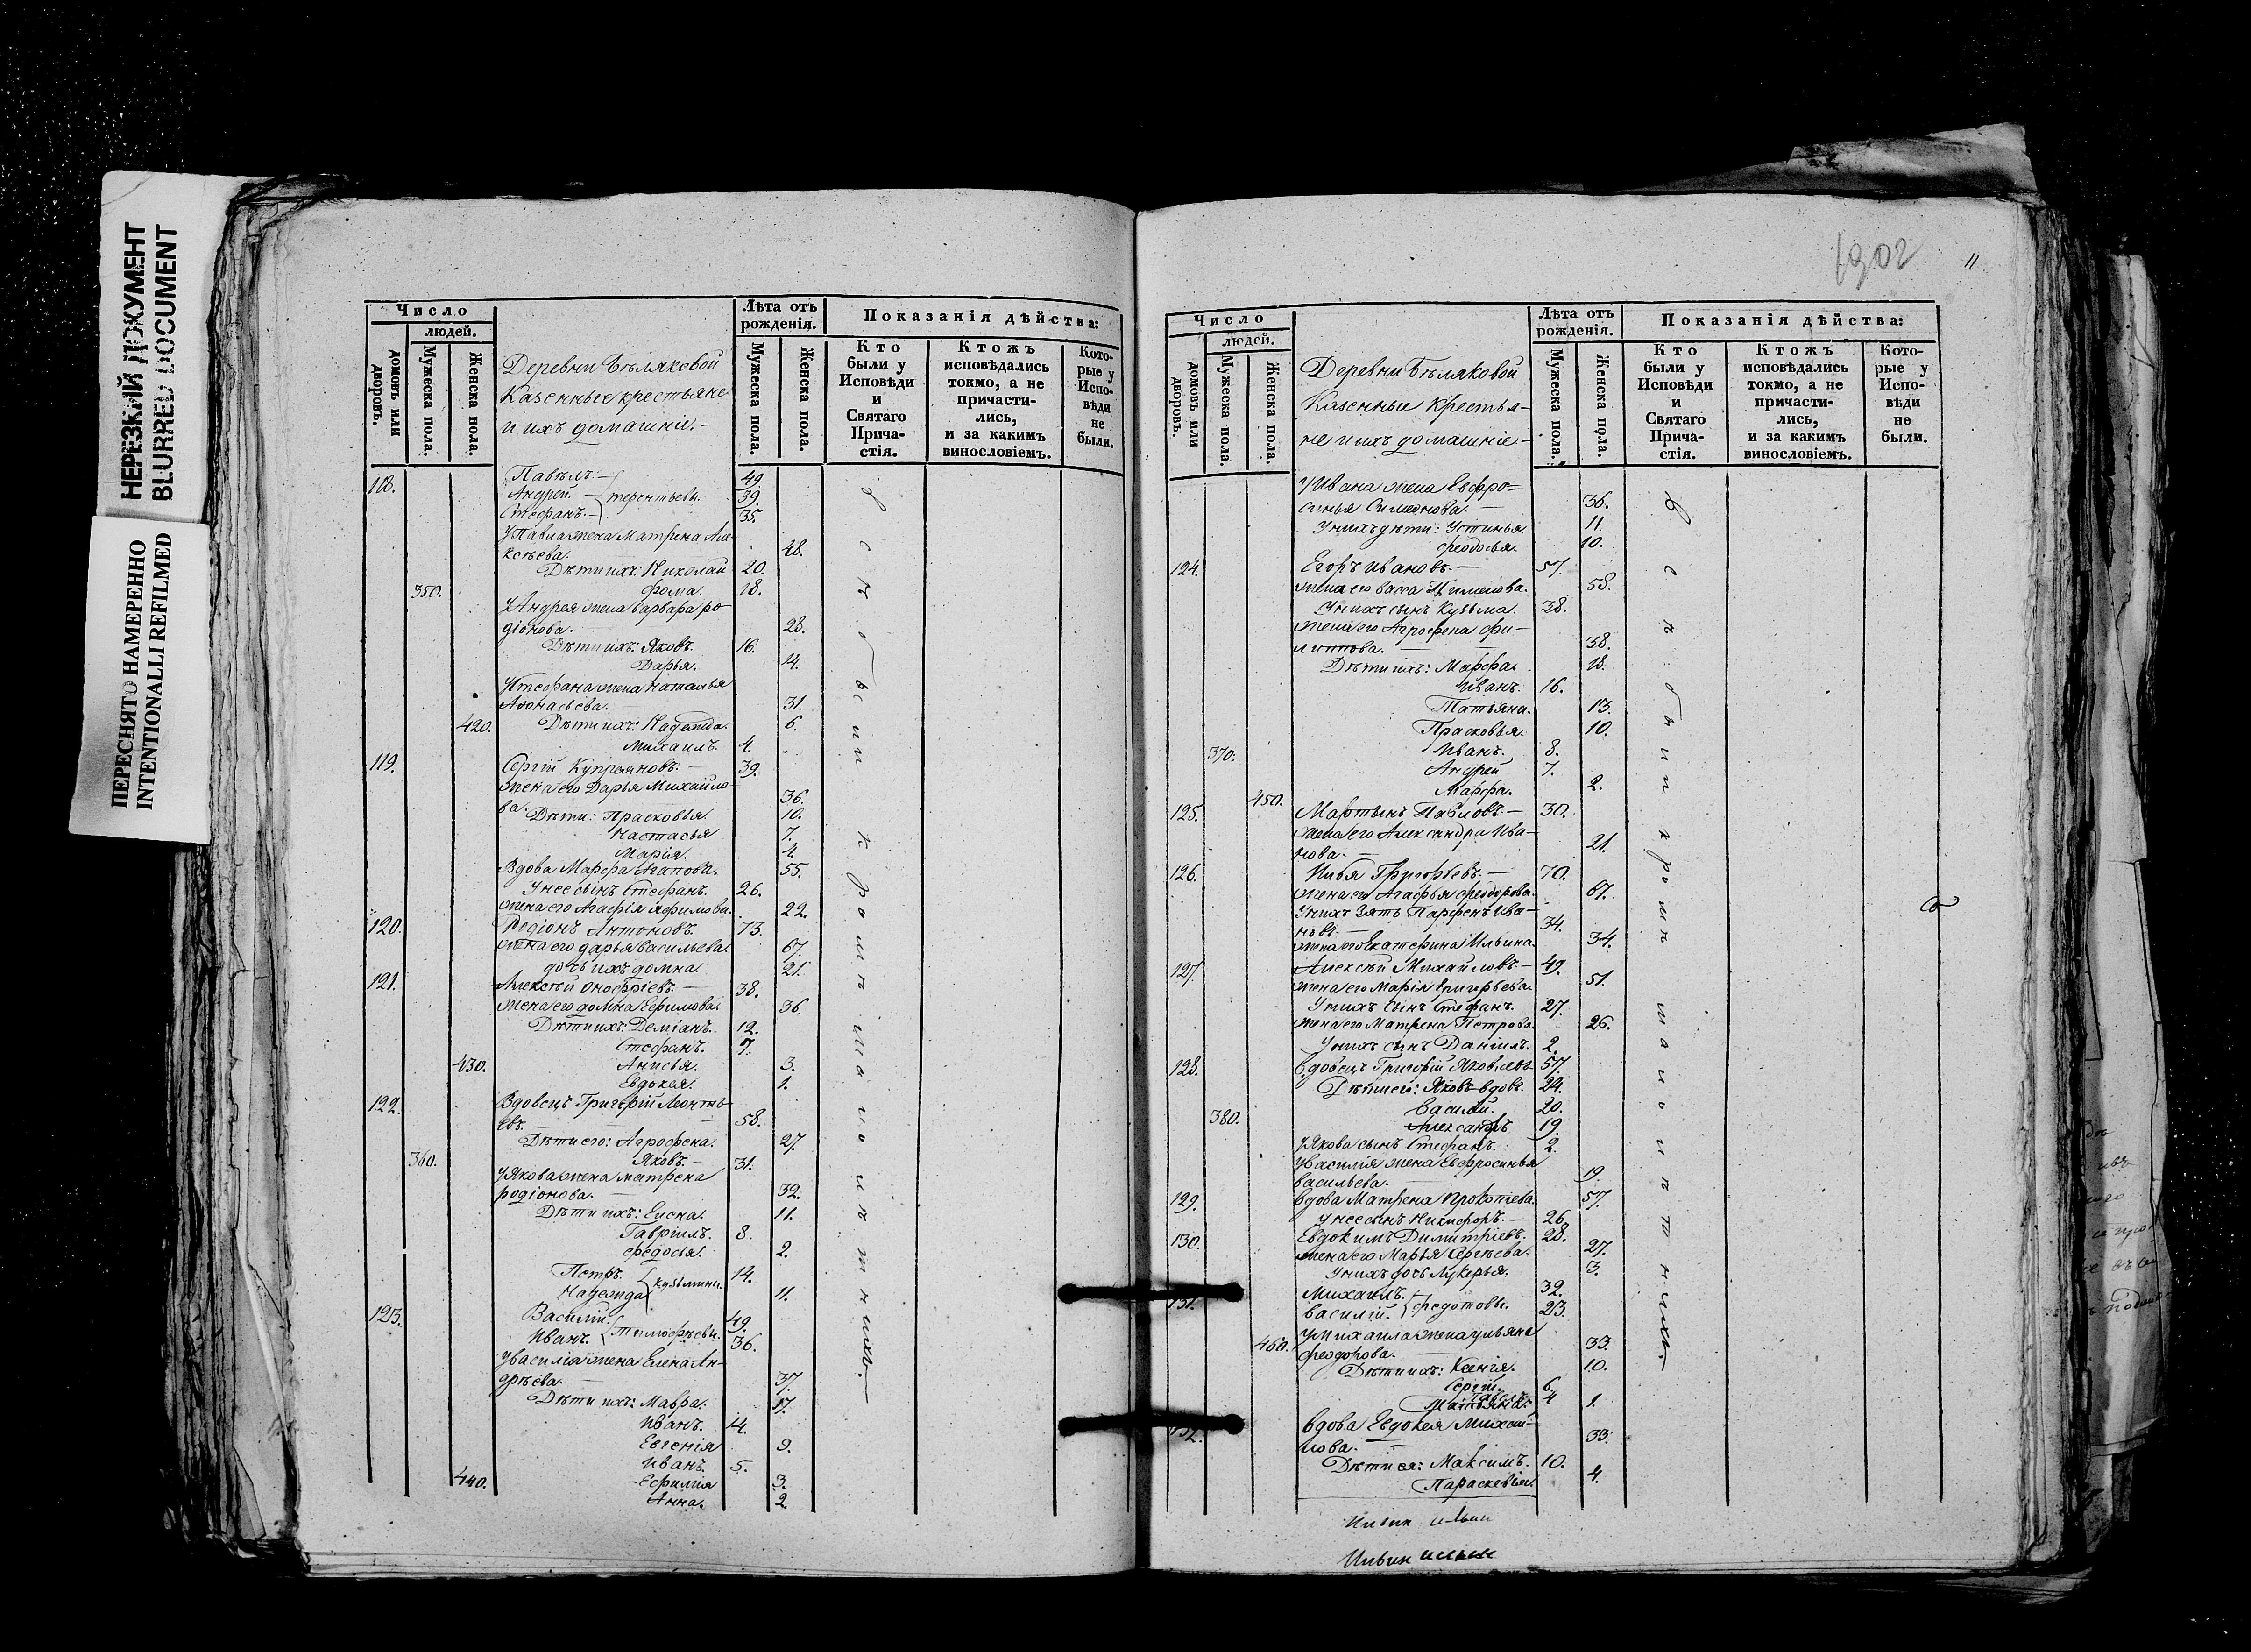 НЕРЕЗКИЙ ДОКУМЕНТ
BLURRED DOCUMENT
ПЕРЕСНЯТО НАМЕРЕННО
INTENTIONALLI REFILMED
Число
людей.
домовъ или дворовъ.
Мужеска пола.
Женска пола.
Деревни Бѣляковой
Казенные крестьяне
и ихъ домашніи.-
Лѣта отъ рожденія.
Мужеска пола.
Женска пола.
Показанія дѣйства:
Кто были у Исповѣди и Святаго Прича-стія.
Ктожъ исповѣдались токмо, а не причасти-лись, и за какимъ винословіемъ.
Кото-рые у Испо-вѣди не были.
118. Павелъ.- 49.
Андрей - Терентьевы. 39.
Стефанъ.- 35.
У Павла жена Матрена Але-
ксѣева. 48.
Дѣти ихъ: Николай 20.
350. Фома. 18.
У Андрея жена Варвара Ро-
діонова. 28.
Дѣти ихъ: Яковъ. 16.
Дарья. 14.
У Стефана жена Наталья
Афонасьева. 31.
420. Дѣти ихъ: Надежда. 6.
Михаилъ. 4.
119. Сергій Купреяновъ.- 39.
жена его Дарья Михайло-
ва. 36.
Дѣти: Прасковья. 10.
Настасья 7.
Марія. 4.
Вдова Марфа Агапова. 55.
У нее сынъ Стефанъ. 26.
жена его Агафія 22.
120. Родіонъ Антоновъ. 73.
жена его Дарья Васильева. 67.
дочь ихъ Домна. 21.
121. Алексѣй Онофріевъ.- 38.
жена его Домна Ефимова. 36.
Дѣти ихъ: Деміанъ. 12.
Стефанъ. 7.
430. Анисья. 3.
Евдокея. 1.
122. Вдовецъ Григорій Леонтьь-
евъ. 58.
Дѣти его: Агрофена. 27.
360. Яковъ.- 31.
У Якова жена Матрена
Родіонова. 32.
Дѣти ихъ: Елена. 11.
Гавріилъ. 8.
Федосья. 2.
Петръ. 14.
Надежда Кузьмины. 11.
123. Василій. 49.
Иванъ. Тимофѣевы. 36.
У Василія жена Елена Ан-
дрѣева. 37.
Дѣти ихъ: Мавра. 17.
Иванъ. 14.
Евгенія 9.
Иванъ. 5.
440. Ефимія 3.
Анна. 2
1302
11
Число
людей.
домовъ или дворовъ.
Мужеска пола.
Женска пола.
Деревни Бѣляковой
Казенные крестья-
не и ихъ домашніе.-
Лѣта отъ рожденія.
Мужеска пола.
Женска пола.
Показанія дѣйства:
Кто были у Исповѣди и Святаго Прича-стія.
Ктожъ исповѣдались токмо, а не причасти-лись, и за какимъ винословіемъ.
Кото-рые у Испо-вѣди не были.
У Ивана жена Евфро-
синья Симеонова. 36.
У нихъ дѣти: Устинья. 11.
Феодосья. 10.
124. Егоръ Ивановъ.- 57.
жена его Васса Пименова. 58.
У нихъ сынъ Кузьма. 38.
жена его Агрофена Фи-
липпова. 38.
Дѣти ихъ: Марфа. 18.
Иванъ. 16.
Татьяна. 13.
Прасковья. 10.
370. Иванъ. 8.
Андрей 7.
450. Марфа. 2.
125. Мартынъ Павловъ.- 30.
жена его Александра Ива-
нова. 21.
126. Илья Григорьевъ.- 70.
жена его Агафья Феодорова. 67.
У нихъ зять Парфенъ Ива-
новъ.- 34.
жена его Екатерина Ильина. 34.
127. Алексѣй Михайловъ.- 49.
жена его Марія Григорьева. 51.
У нихъ сынъ Стефанъ. 27.
жена его Матрена Петрова. 26.
У нихъ сынъ Даніилъ. 2.
128. Вдовецъ Григорій Яковлевъ 57.
Дѣти его: Яковъ вдовъ. 24.
Василій. 20.
380. Александръ 19.
У Якова сынъ Стефанъ. 2.
У Василія жена Евфросинья
Васильева. 19.
129. Вдова Матрена Прокопіева. 57.
У нее сынъ Никифоръ.- 26.
130. Евдокимъ Димитріевъ. 28.
жена его Марья Сергѣева. 27.
У нихъ дочь Лукерья. 3.
131. Михаилъ. 32.
Василій. Федотовы. 23.
У Михаила жена Ульяна
460. Феодорова. 33.
Дѣти ихъ: Ксенія. 10.
Сергій. 6.
Павелъ. 4
Матьяна. 1.
132. Вдова Евдокея Михай-
лова. 33.
Дѣти ея: Максимъ. 10.
Параскевія. 4.